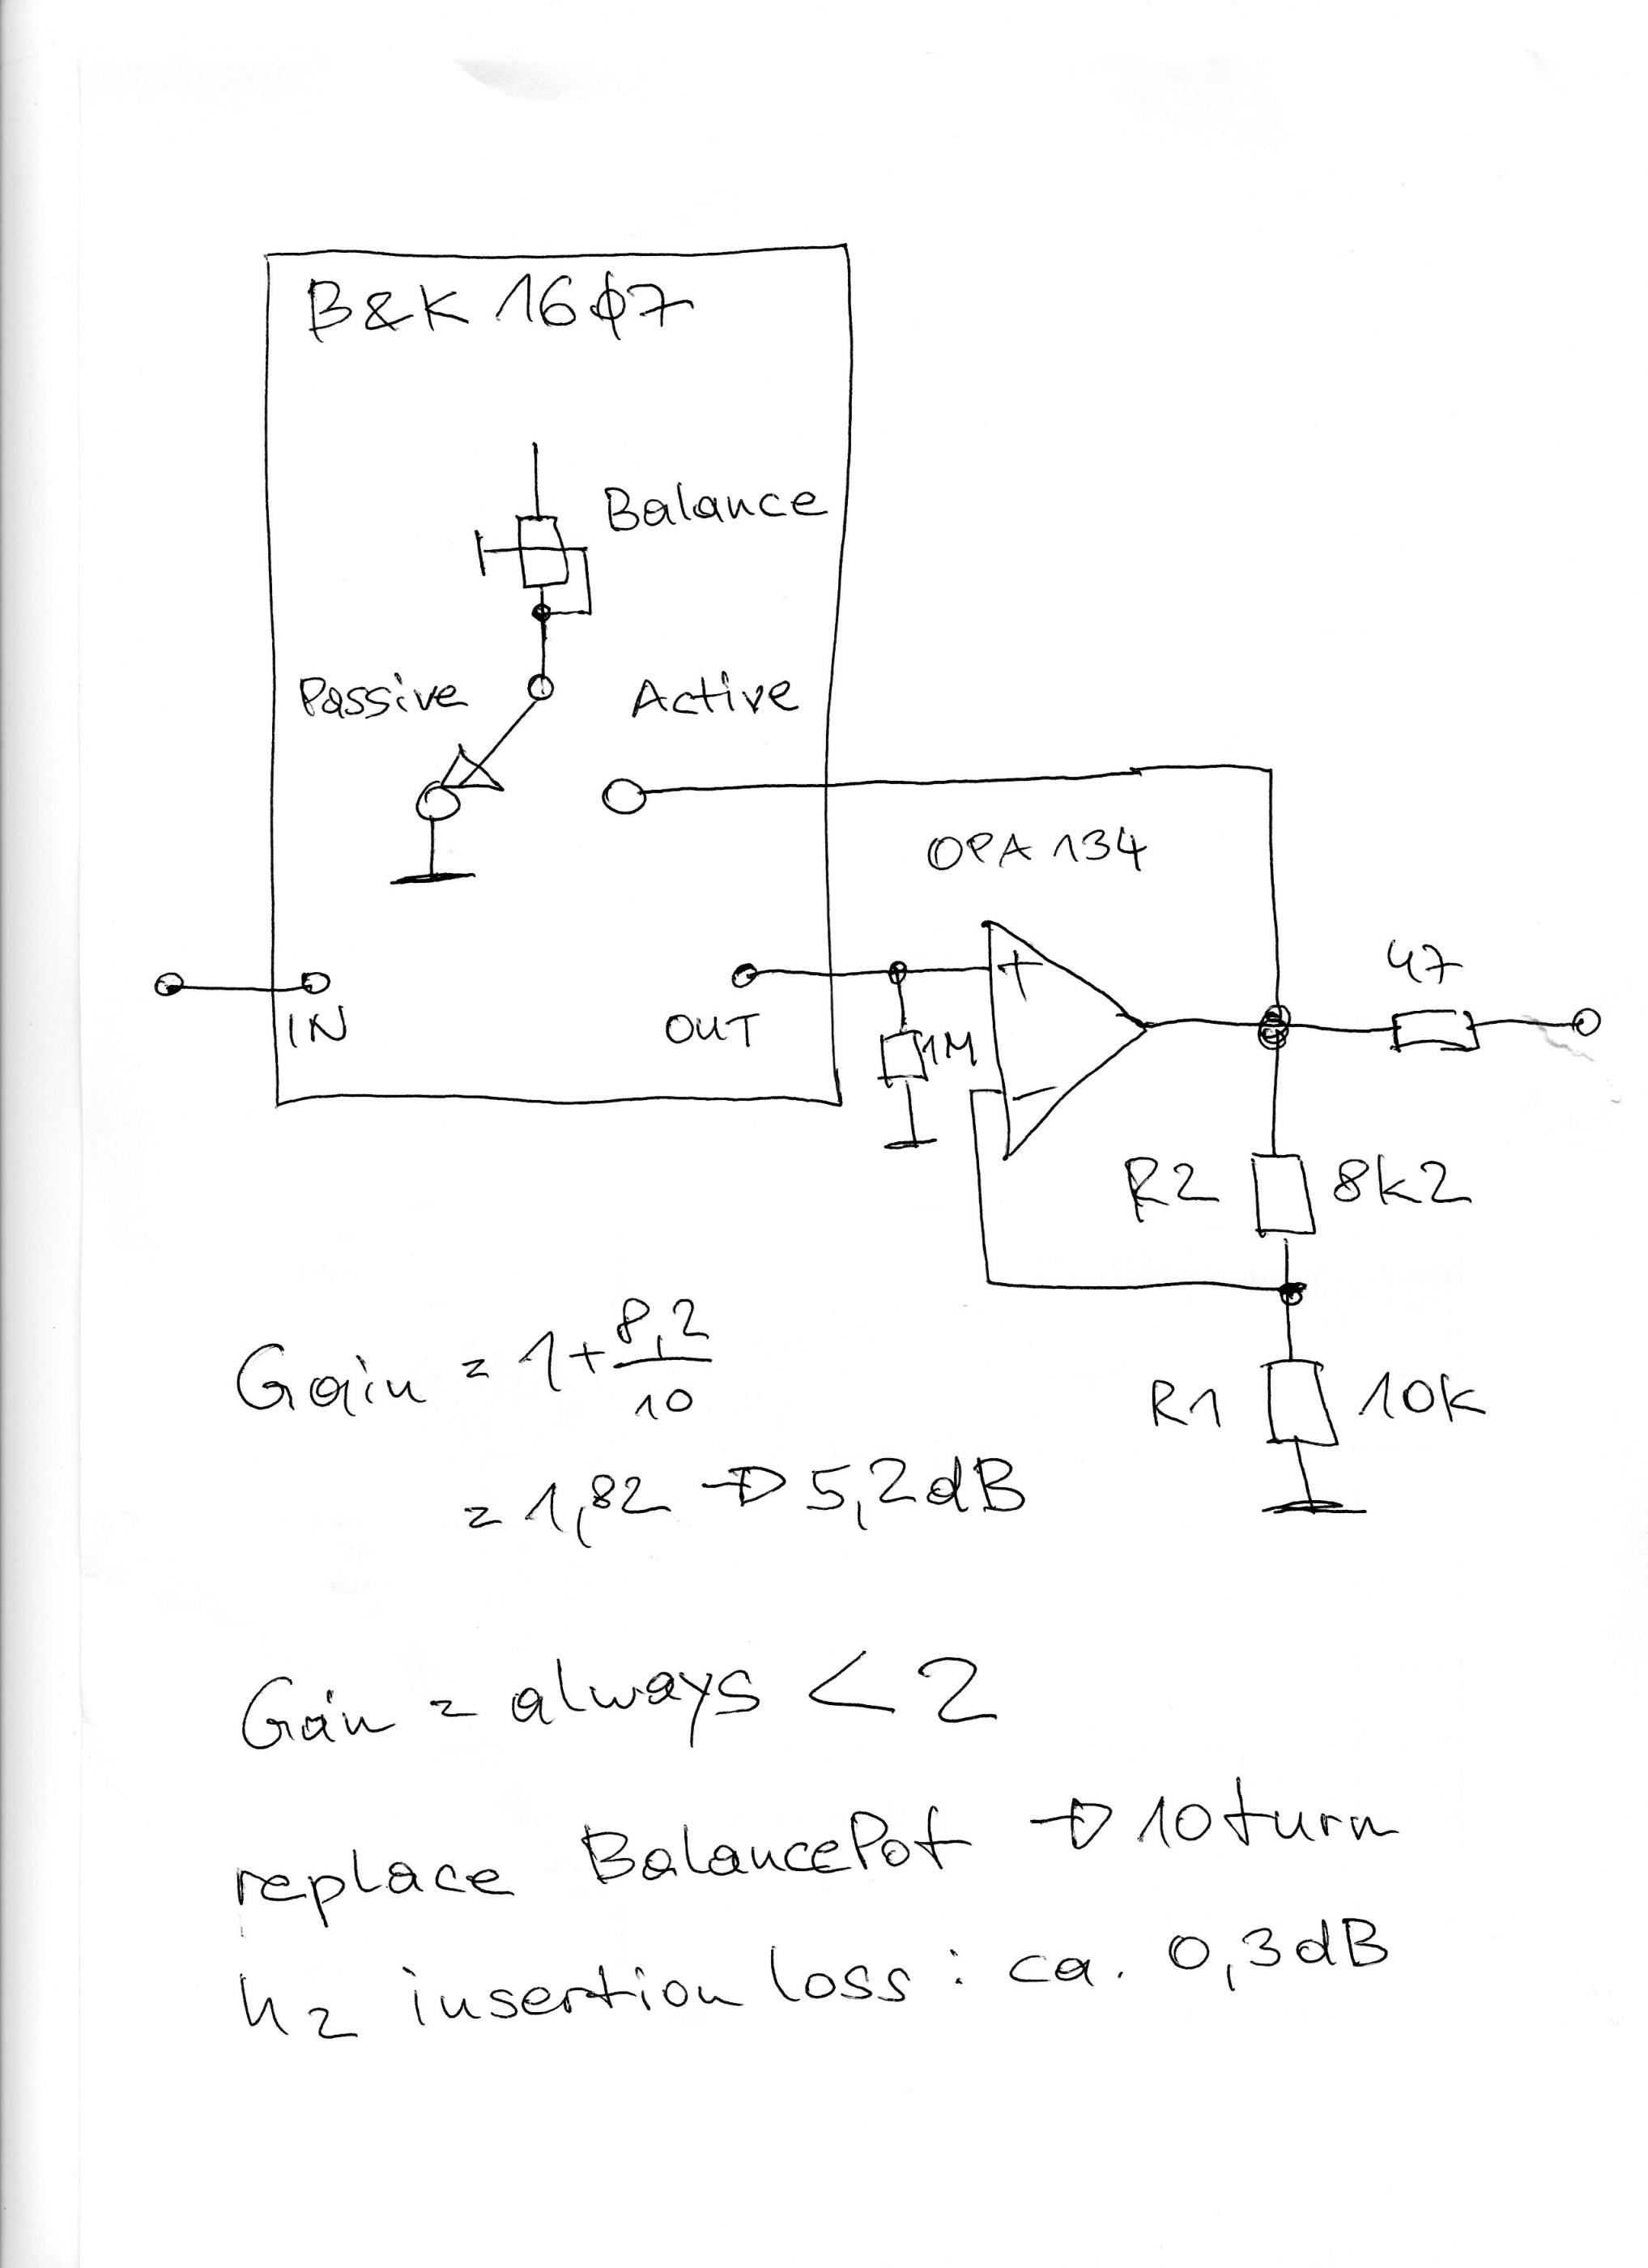 B&K 16φ7
Balance
Passive
Active
OPA 134
47
IN
OUT
1M
+
−
R2 8k2
R1 10k
Gain = 1 + 8,2
10
= 1,82 → 5,2dB
Gain = always < 2
replace BalancePot → 10turn
h2 insertion loss : ca. 0,3dB